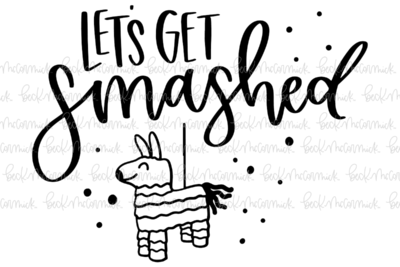 LET'S GET
smashed